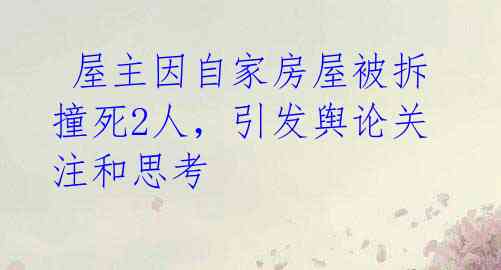 屋主因自家房屋被拆
撞死2人，引发舆论关
注和思考